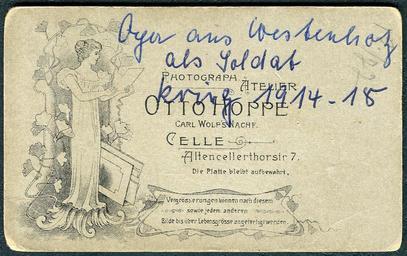 Oyer aus Westenholz
als Soldat
PHOTOGRAPH. ATELIER
krieg 1914-18
OTTO HOPPE
CARL WOLFS NACHF.
CELLE
Altencellerthorstr 7.
Die Platte bleibt aufbewahrt.
Vergrösserungen können nach diesem
sowie jedem anderen
Bilde bis über Lebensgrösse angefertigt werden.